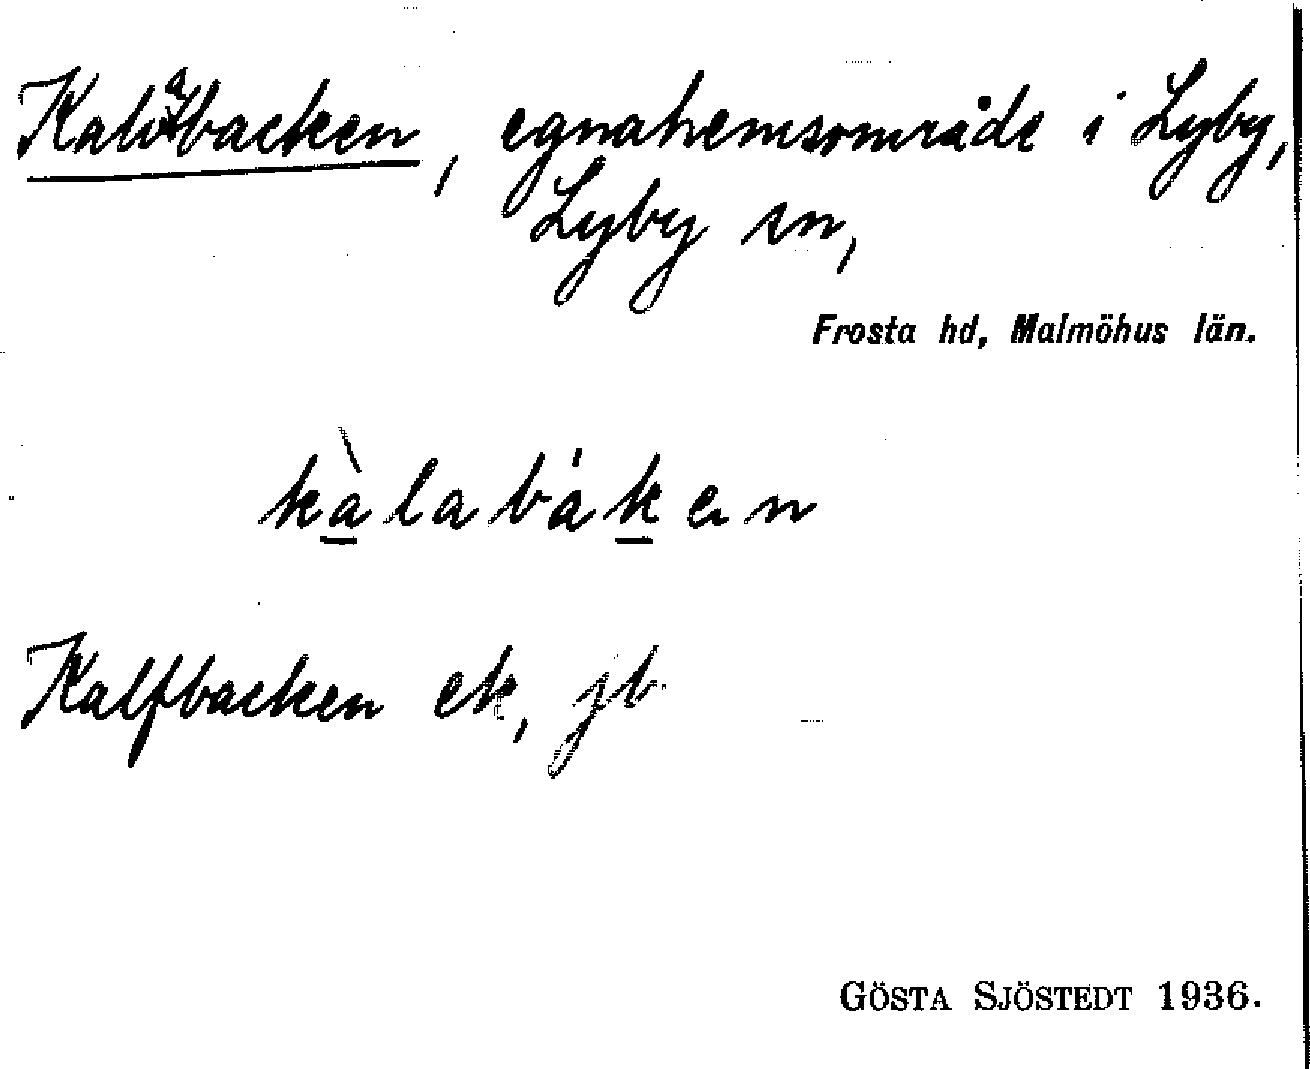 Kalvabacken, egnahemsområde i Lyby,
Lyby sn,
Frosta hd, Malmöhus län.
kàlabáken
Kalfbacken ek, jb
GÖSTA SJÖSTEDT 1936.